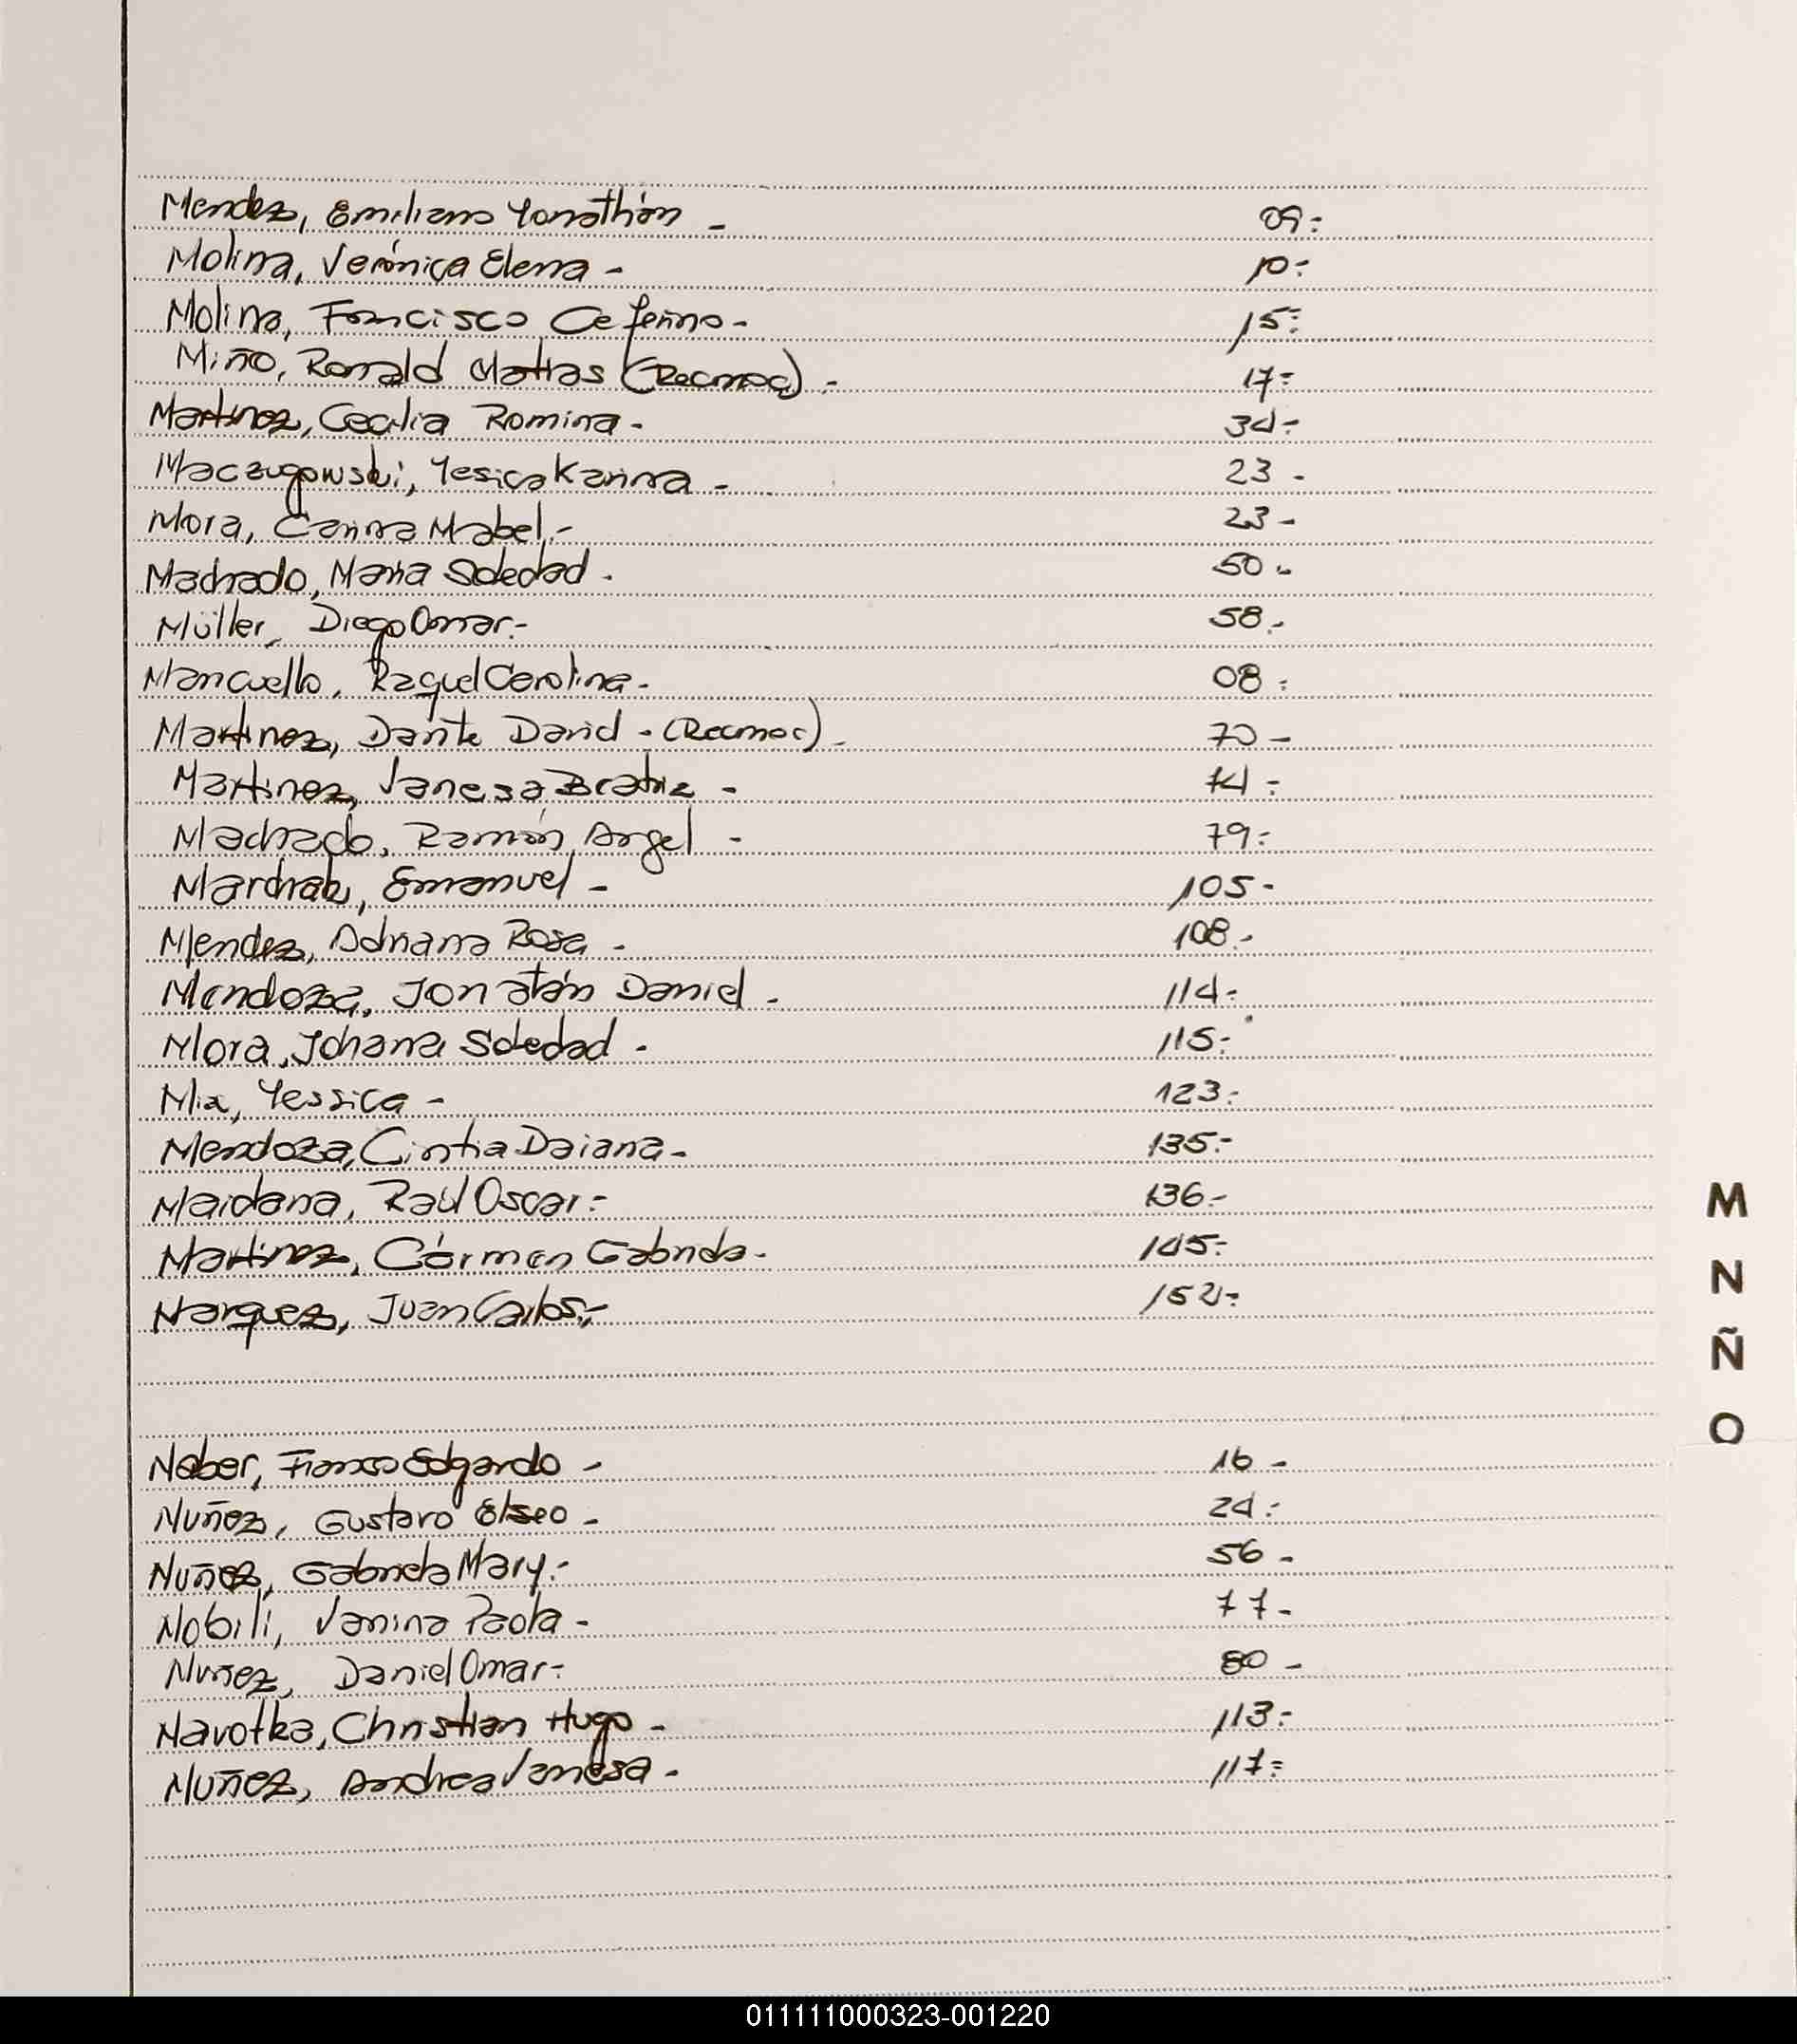 Mendez, Emiliano Yonathán - 09.-
Molina, Verónica Elena - 10.-
Molina, Francisco Ceferino.- 15.-
Miño, Ronald Matias (Recnoc).- 17.-
Martinez, Cecilia Romina.- 34.-
Maczugowski, Yesica Karina.- 23.-
Mora, Carina Mabel.- 23.-
Machado, Maria Soledad. 50.-
Müller, Diego Omar.- 58.-
Mancuello, Raquel Carolina.- 08.-
Martinez, Dante David.(Recnoc).- 70.-
Martinez, Vanesa Beatriz - 74.-
Machado, Ramón Angel - 79.-
Marchak, Emanuel - 105.-
Mendez, Adriana Rosa - 108.-
Mendoza, Jonatán Daniel.- 114.-
Mora, Johana Soledad. 115.-
Mix, Yessica - 123.-
Mendoza, Cintia Daiana.- 135.-
Maidana, Raúl Oscar.- 136.-
Martinez, Cármen Gabriela.- 145.-
Marquez, Juan Carlos.- 152.-
M
N
Ñ
O
Neber, Franco Edgardo - 16.-
Nuñez, Gustavo Eliseo - 24.-
Nuñez, Gabriela Mary.- 56.-
Nobili, Vanina Paola - 77.-
Nuñez, Daniel Omar.- 80.-
Navotka, Christian Hugo - 113.-
Nuñez, Andrea Vanesa - 117.-
011111000323-001220